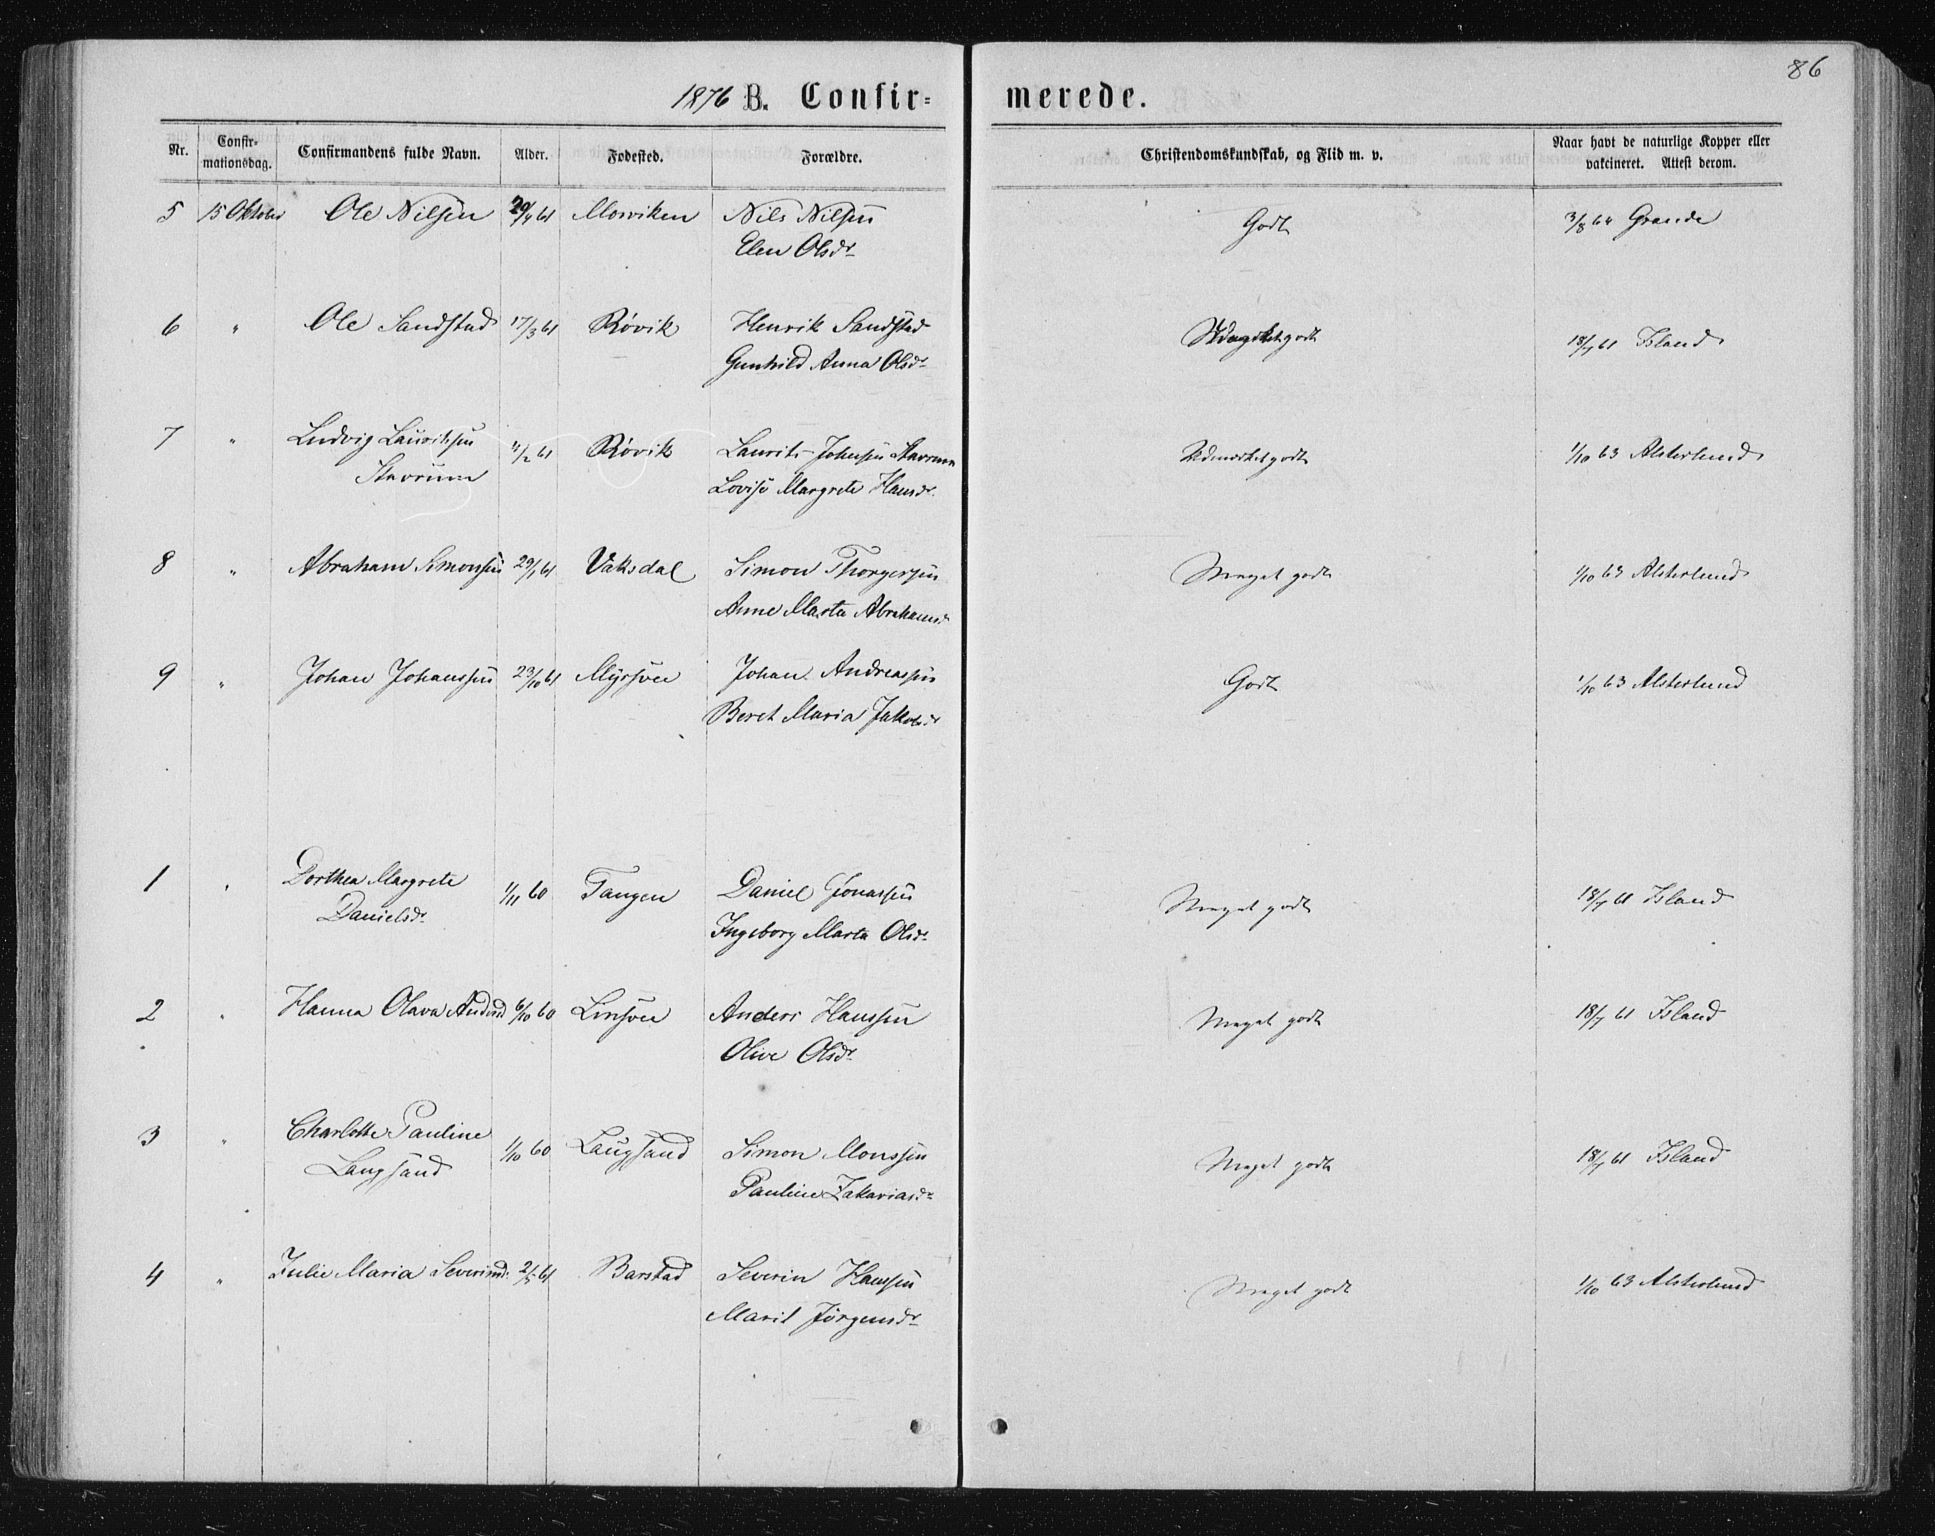 86
1876 B. Confir= merede.
Nr. Confir-mationsdag. Confirmandens fulde Navn. Alder. Fødested. Forældre. Christendomskundskab, og Flid m. v. Naar havt de naturlige Kopper eller vakcineret. Attest derom.
5 15 Oktober Ole Nilsen 20/4 61 Morviken Nils Nilsen Godt 3/8 64 Grande
Elen Olsdr
6 " Ole Sandstad 17/3 61 Røvik Henrik Sandstad godt 18/7 61 Island
Gunhild Anna Olsdr
7 " Ludvig Lauritssen 4/2 61 Røvik Laurits Johnsen Stavrum Udmerket godt 1/10 63 Alsterlund
Stavrum Lovise Margrete Hansdr.
8 " Abraham Simonsen 29/1 61 Vaksdal Simon Thorgersen Meget godt 1/10 63 Alsterlund
Anne Marta Abrahamsd.
9 " Johan Johanssen 23/10 61 Myrsve Johan Andreassen Godt 1/10 63 Alsterlund
Beret Maria Jakobsdr
1 " Dorthea Margrete 1/11 60 Tangen Daniel Jonassen Meget godt 18/7 61 Island
Danielsdr. Ingeborg Marta Olsdr.
2 " Hanna Olava Andersd 6/10 60 Anders Hanssen Meget godt 18/7 61 Island
Olive Olsdr
3 " Charlotte Pauline 1/10 60 Laugsand Simon Monssen Meget godt 18/7 61 Island
Laugsand Pauline Zakariasdr
4 " Julie Maria Severinsd. 2/5 61 Barstad Severin Hansen Meget godt 1/10 63 Alsterlund
Marit Jørgensdr